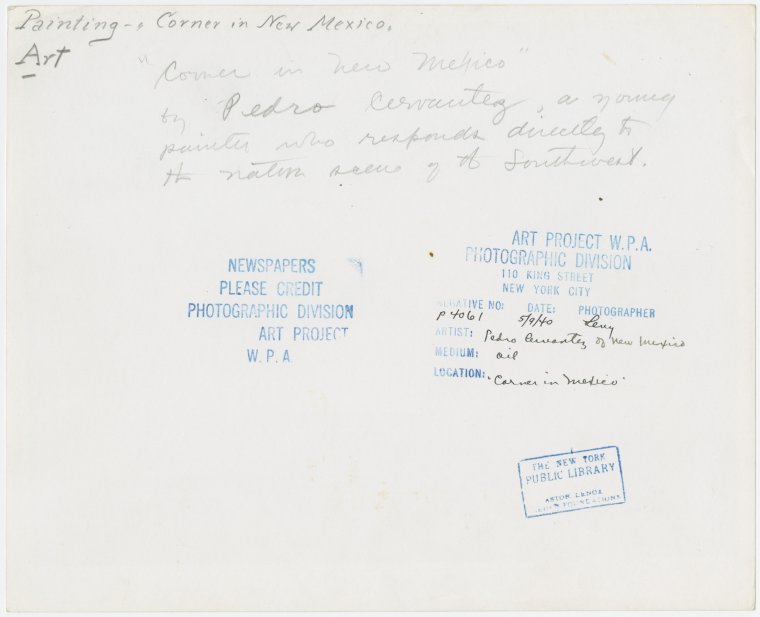 Painting - Corner in New Mexico.
Art
"Corner in New Mexico"
by Pedro Cervantez, a young
painter who responds directly to
the native scene of the Southwest.
NEWSPAPERS
PLEASE CREDIT
PHOTOGRAPHIC DIVISION
ART PROJECT
W. P. A.
ART PROJECT W.P.A.
PHOTOGRAPHIC DIVISION
110 KING STREET
NEW YORK CITY
NEGATIVE NO: DATE: PHOTOGRAPHER
P4061 5/9/40 Levy
ARTIST: Pedro Cervantez of New Mexico
MEDIUM: oil
LOCATION: "Corner in Mexico"
THE NEW YORK
PUBLIC LIBRARY
ASTOR LENOX
TILDEN FOUNDATIONS